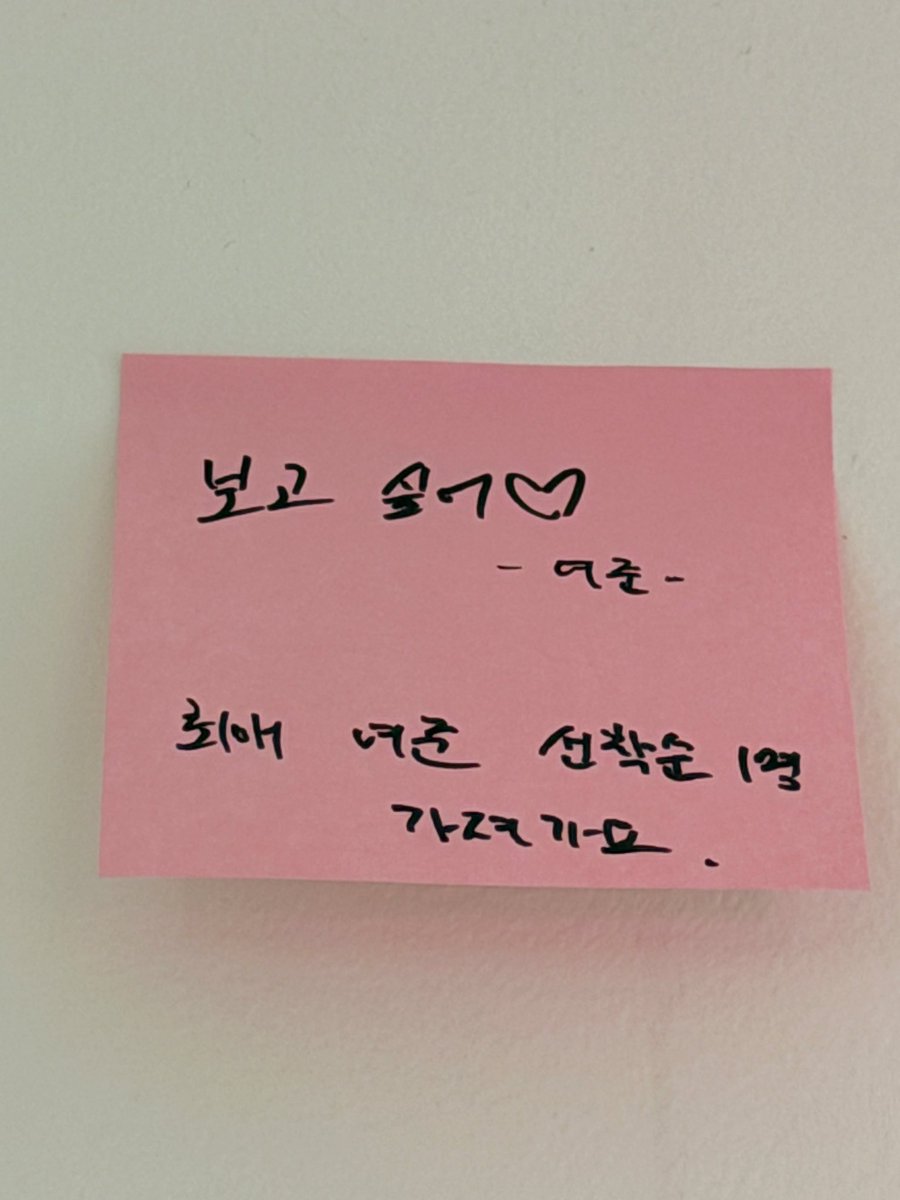 보고 싶어♡
- 여준 -
최애 여준 선착순 1명
가져가요.